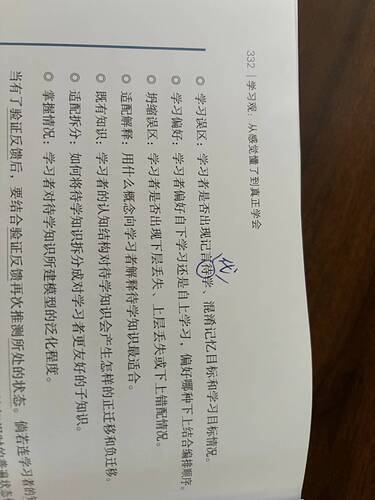 332 | 学习观：从感觉懂了到真正学会
代
◎ 学习误区：学习者是否出现记言待学、混淆记忆目标和学习目标情况。
◎ 学习偏好：学习者偏好自下学习还是自上学习，偏好哪种下上结合编排顺序。
◎ 坍缩误区：学习者是否出现下层丢失、上层丢失或下上错配情况。
◎ 适配解释：用什么概念向学习者解释待学知识最适合。
◎ 既有知识：学习者的认知结构对待学知识会产生怎样的正迁移和负迁移。
◎ 适配拆分：如何将待学知识拆分成对学习者更友好的子知识。
◎ 掌握情况：学习者对待学知识所建模型的泛化程度。
当有了验证反馈后，要结合验证反馈再次推测所处的状态。倘若连学习者的